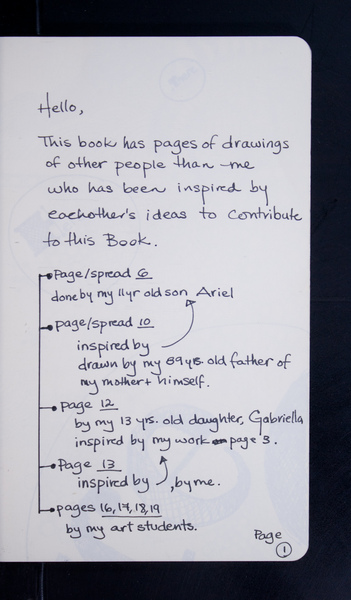 Hello,
This book has pages of drawings
of other people than me
who has been inspired by
eachother's ideas to contribute
to this Book.
Page/spread 6
done by my 11yr old son Ariel
page/spread 10
inspired by
drawn by my 89 yrs. old father of
my mother + himself.
Page 12
by my 13 yrs. old daughter, Gabriella
inspired by my work page 3.
Page 13
inspired by , by me.
pages 16, 17, 18, 19
by my art students.
Page
1